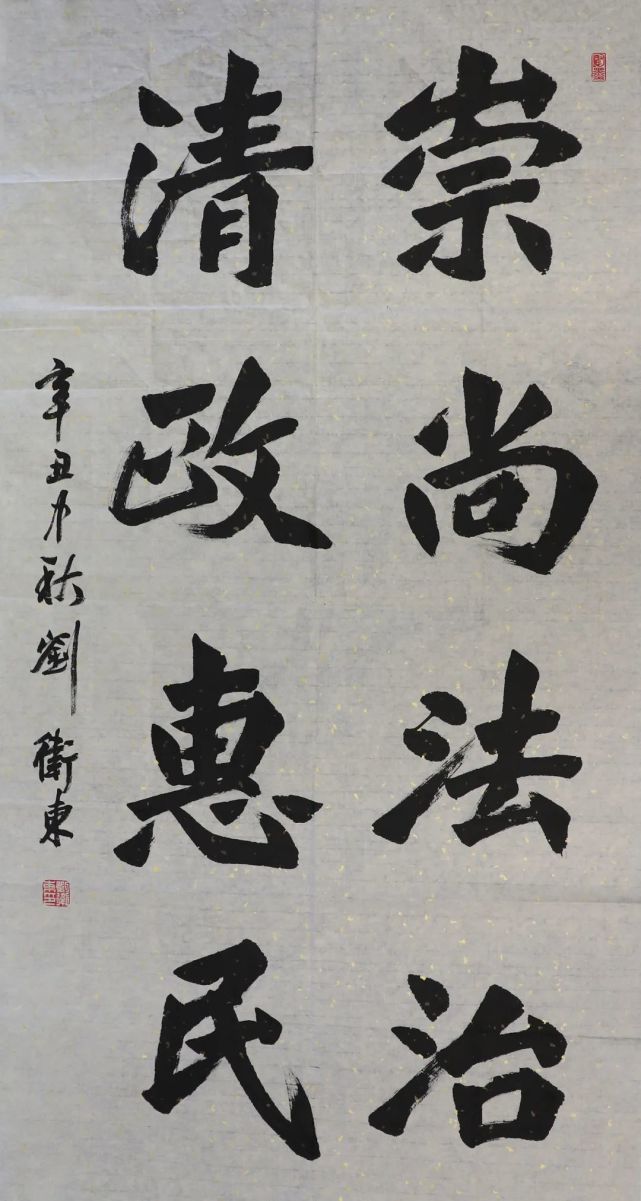 崇尚法治
清政惠民
辛丑中秋劉衛東